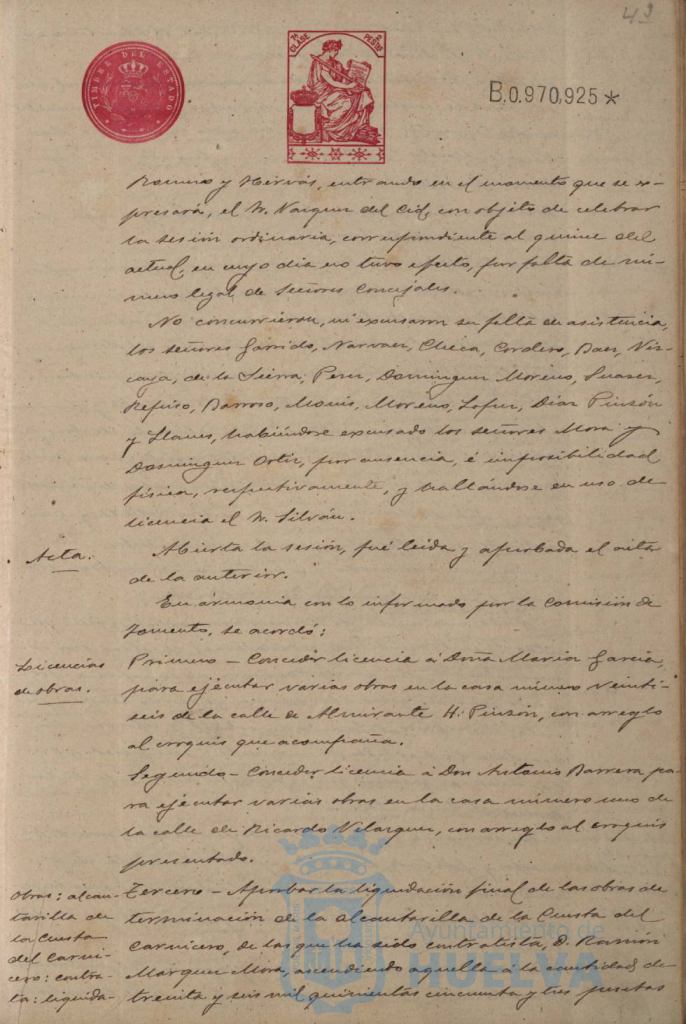 43
TIMBRE DEL ESTADO
7ª CLASE
PESETAS
B.0.970,925 *
Romero y Hervás, entrando en el momento que se ex-
presará, el Sr. Vazquez del Cid, con objeto de celebrar
la sesión ordinaria, correspondiente al quince del
actual, en cuyo dia no tuvo efecto, por falta de nú-
mero legal de Señores Concejales.
No concurrieron, ni excusaron su falta de asistencia,
los señores Garrido, Narvaez, Checa, Cordero, Baez, Viz-
caya, de la Sierra, Perez, Dominguez Moreno, Suarez,
Refijo, Barroso, Monis, Moreno, Lopez, Diaz Pinzón
y Llanes, habiéndose excusado los señores Mora y
Dominguez Ortiz, por ausencia, é imposibilidad
física, respectivamente, y hallándose en uso de
licencia el Sr. Silván.
Acta.
Abierta la sesión, fué leida y aprobada el acta
de la anterior.
En ármonia con lo informado por la Comisión de
Fomento, se acordó:
Licencias
de obras.
Primero - Conceder licencia á Doña Maria Garcia,
para ejecutar varias obras en la casa número veinti-
seis de la calle de Almirante H. Pinzón, con arreglo
al croquis que acompaña.
Segundo - Conceder licencia á Don Antonio Barrera pa-
ra ejecutar varias obras en la casa número uno de
la calle de Ricardo Velazquez, con arreglo al croquis
presentado.
Obras: alcan-
tarilla de
la Cuesta
del Carni-
cero: contra-
ta: liquida-
Tercero - Aprobar la liquidación final de las obras de
terminación de la alcantarilla de la Cuesta del
Carnicero, de las que ha sido contratista, D. Ramón
Marquez Mora, ascendiendo aquella á la cantidad de
treinta y seis mil quinientas cincuenta y tres pesetas
Ayuntamiento de
HUELVA